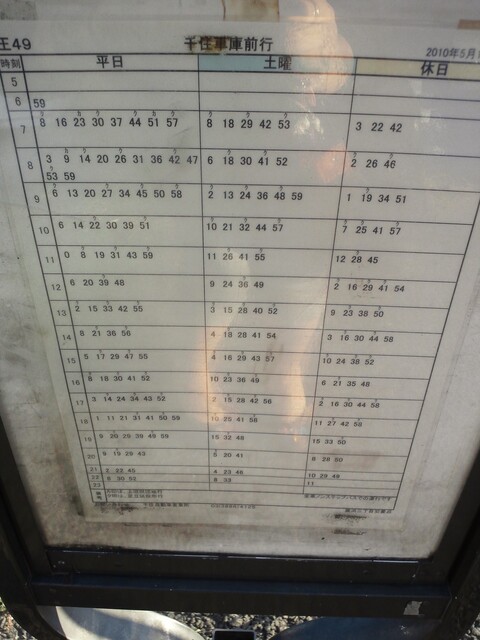 王49 千住車庫前行 2010年5月
時刻 平日 土曜 休日
5
6 59
7 8 16 23 30 37 44 51 57 8 18 29 42 53 3 22 42
8 3 9 14 20 26 31 36 42 47 6 18 30 41 52 2 26 46
53 59
9 6 13 20 27 34 45 50 58 2 13 24 36 48 59 1 19 34 51
10 6 14 22 30 39 51 10 21 32 44 57 7 25 41 57
11 0 8 19 31 43 59 11 26 41 55 12 28 45
12 6 20 39 48 9 24 36 49 2 16 29 41 54
13 2 15 33 42 55 3 15 28 40 52 9 23 38 50
14 8 21 36 56 4 18 28 41 54 3 16 30 44 58
15 5 17 29 47 55 4 16 29 43 57 10 24 38 52
16 8 18 30 41 52 10 23 36 49 6 21 35 48
17 3 14 24 34 43 52 2 15 28 42 56 2 16 30 44 58
18 1 11 21 31 41 50 59 10 25 41 58 11 27 42 58
19 9 20 29 39 49 59 15 32 48 15 33 50
20 9 19 29 43 5 20 41 8 28 50
21 2 22 45 4 23 46 10 29 48
22 8 30 52 8 33 11
23